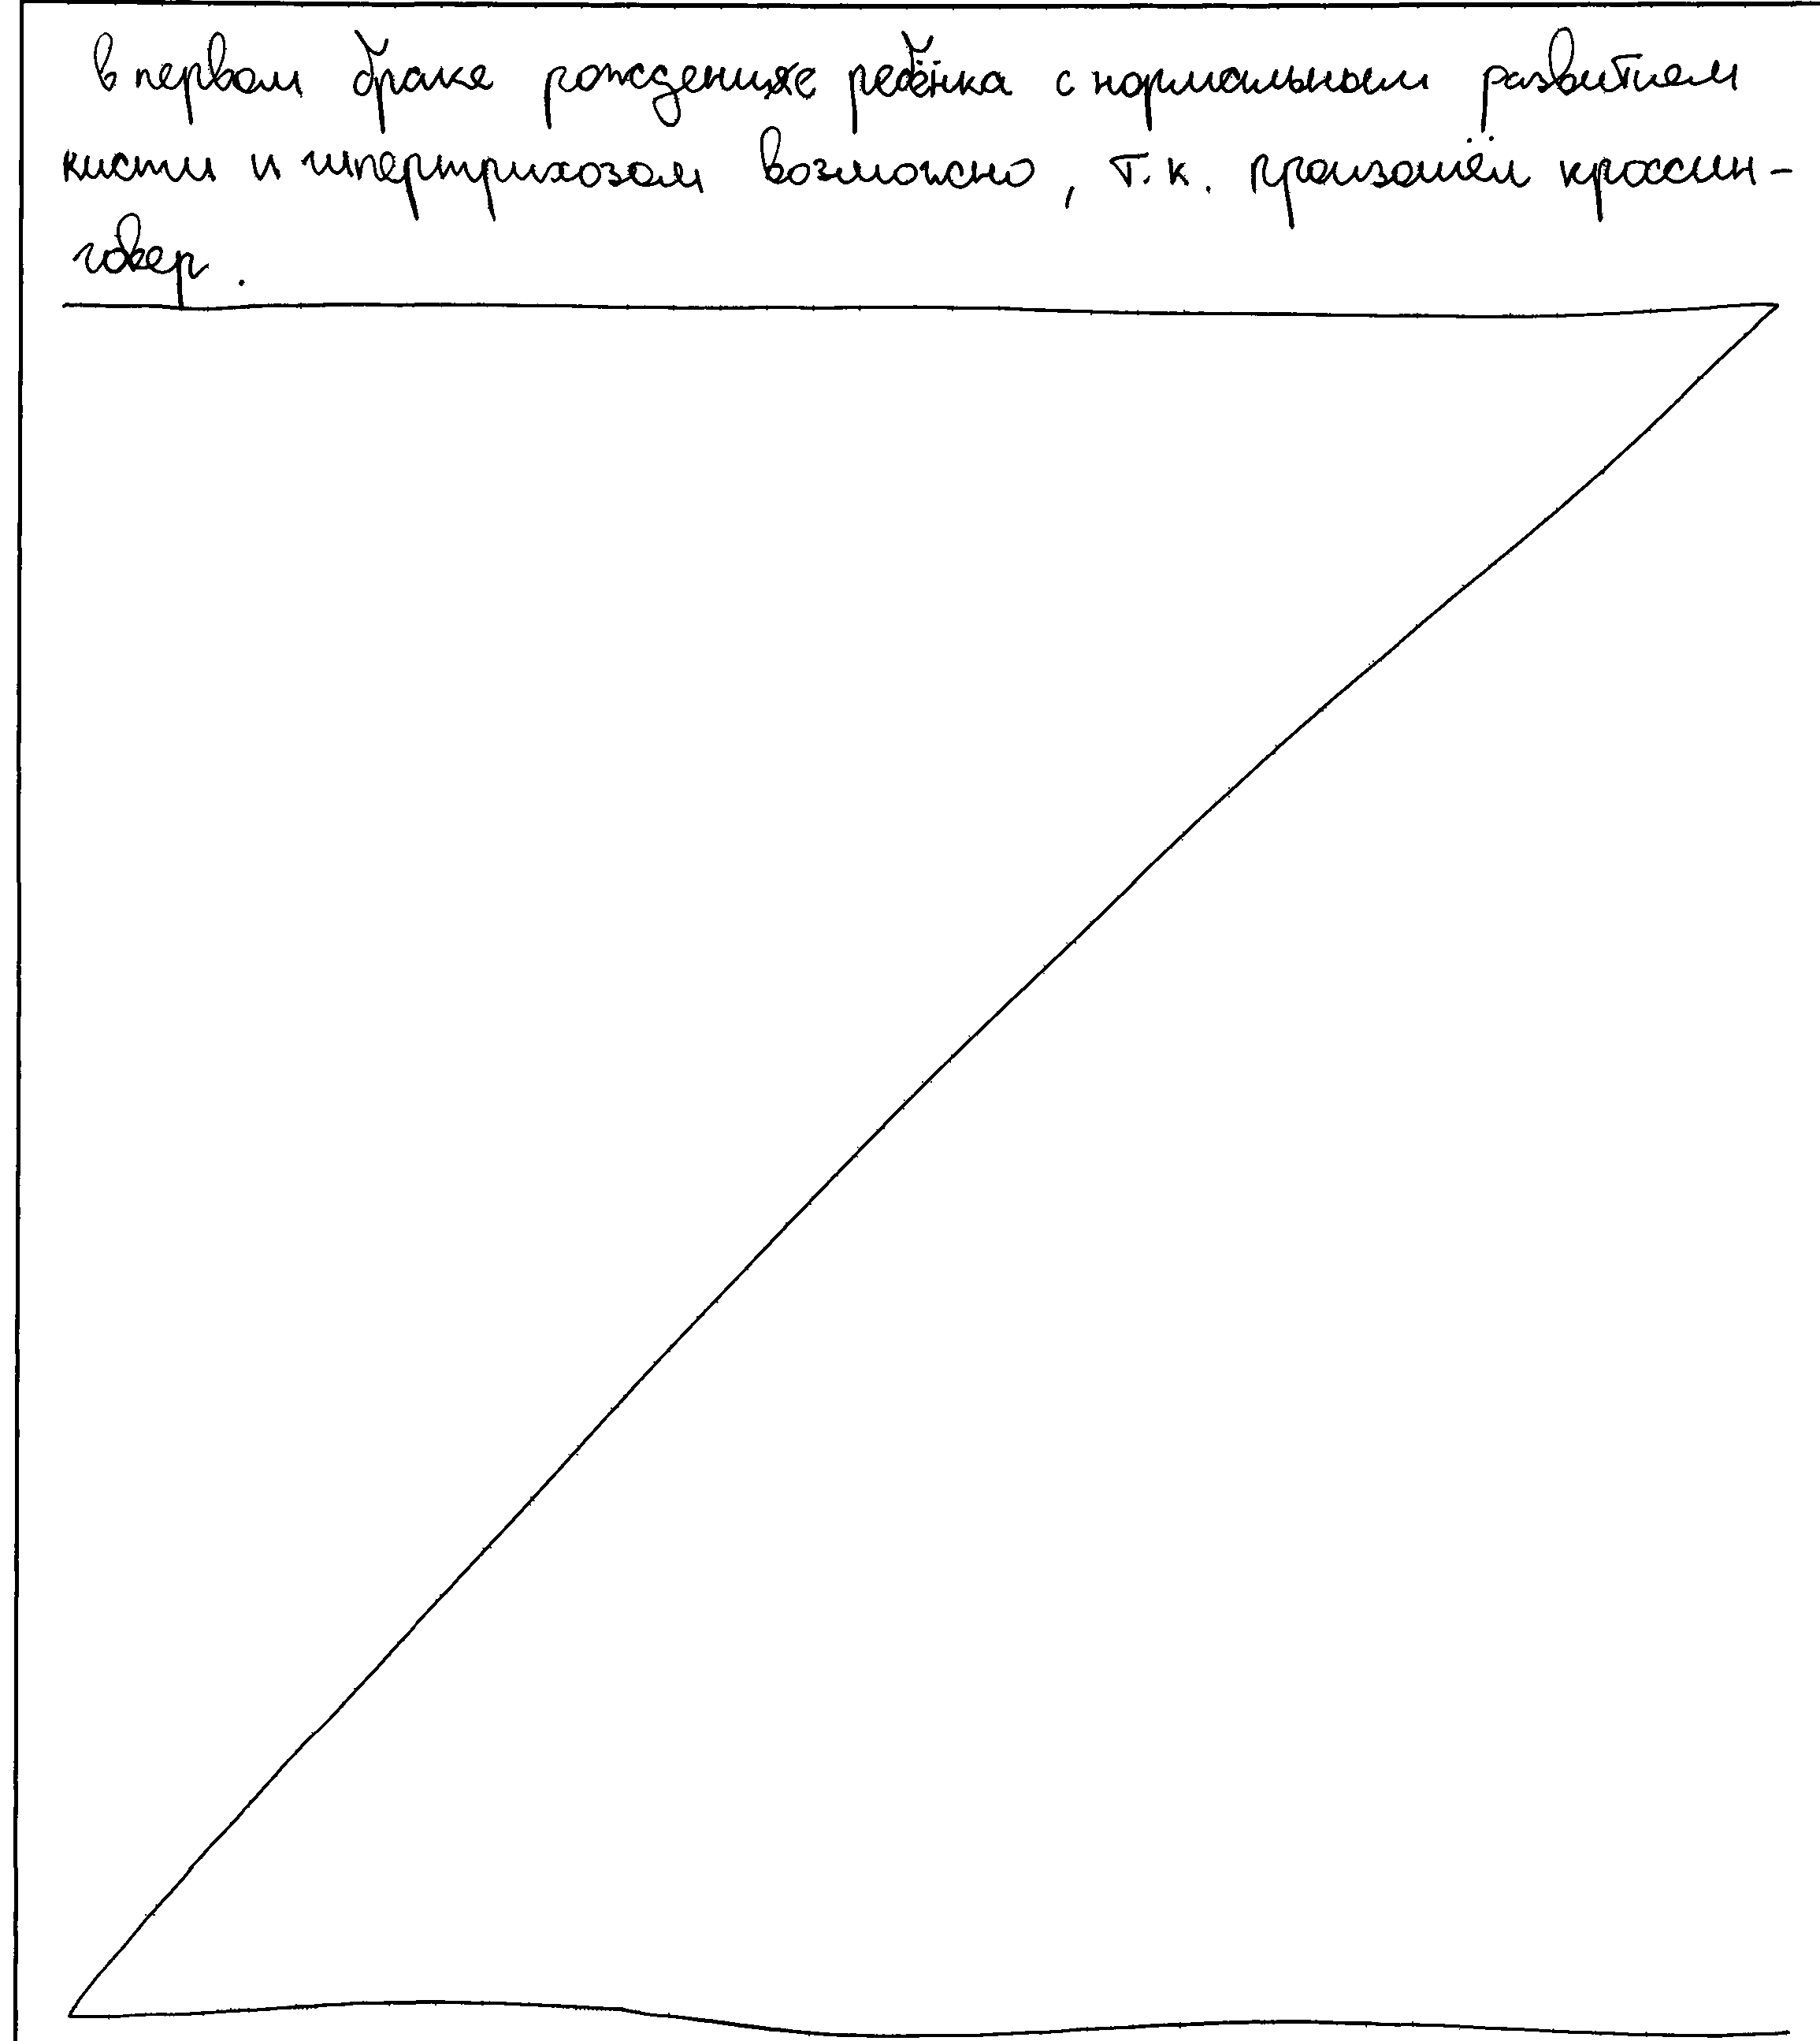 в первом браке рождение ребёнка с нормальным развитием
кисти и гипертрихозом возможно, т.к. произошёл кроссин-
говер.